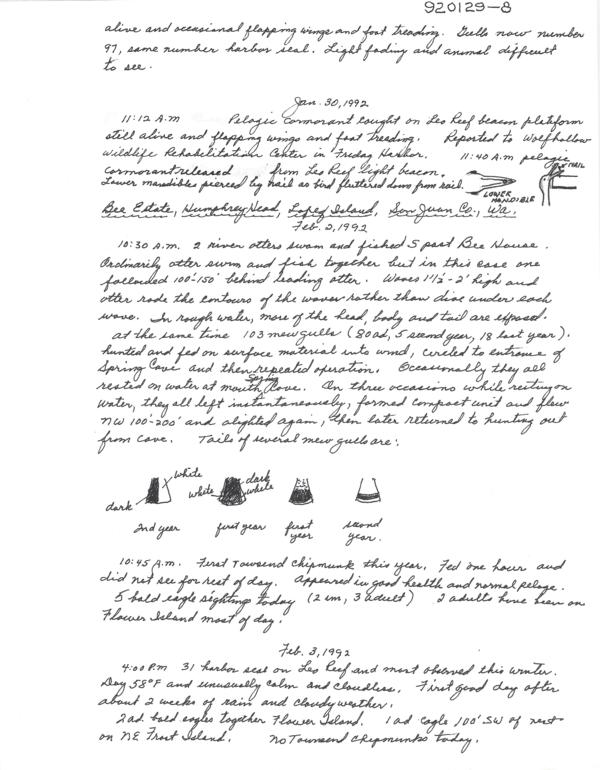 920129-8
alive and occasional flapping wings and foot treading. Gulls now number
97, same number harbor seal. Light fading and animal difficult
to see.
Jan. 30, 1992
11:12 A.M Pelagic cormorant caught on Leo Reef beacon platform
still alive and flapping wings and foot treading. Reported to Wolfhollow
Wildlife Rehabilitation Center in Friday Harbor. 11:40 A.M pelagic
cormorant released from Leo Reef Light beacon.
Lower mandibles pierced by nail as bird fluttered down from rail.
NAIL
LOWER
MANDIBLE
Bee Estate, Humphrey Head, Lopez Island, San Juan Co., Wa.
Feb. 2, 1992
10:30 A.M. 2 river otters swam and fished 5 past Bee House.
Ordinarily otter swim and fish together but in this case one
followed 100'-150' behind leading otter. Waves 1½-2' high and
otter rode the contours of the waves rather than dive under each
wave. In rough water, more of the head, body and tail are exposed.
At the same time 103 mew gulls (80 ad, 5 second year, 18 last year).
hunted and fed on surface material into wind, circled to entrance of
Spring Cove and then repeated operation. Occasionally they all
rested on water at mouth Spring Cove. On three occasions while resting on
water, they all left instantaneously, formed compact unit and flew
NW 100'-200' and alighted again, then later returned to hunting out
from cove. Tails of several mew gulls are:
white
dark
white
dark
white
2nd year first year first year second year.
10:45 A.M. First Townsend chipmunk this year. Fed one hour and
did not see for rest of day. Appeared in good health and normal pelage.
5 bald eagle sightings today (2 im, 3 adult) 2 adults have been on
Flower Island most of day.
Feb. 3, 1992
4:00 P.M 31 harbor seal on Leo Reef and most observed this winter.
Day 58°F and unusually calm and cloudless. First good day after
about 2 weeks of rain and cloudy weather.
2 ad. bald eagles together Flower Island. 1 ad eagle 100' SW of nest
on NE Frost Island. No Townsend chipmunks today.